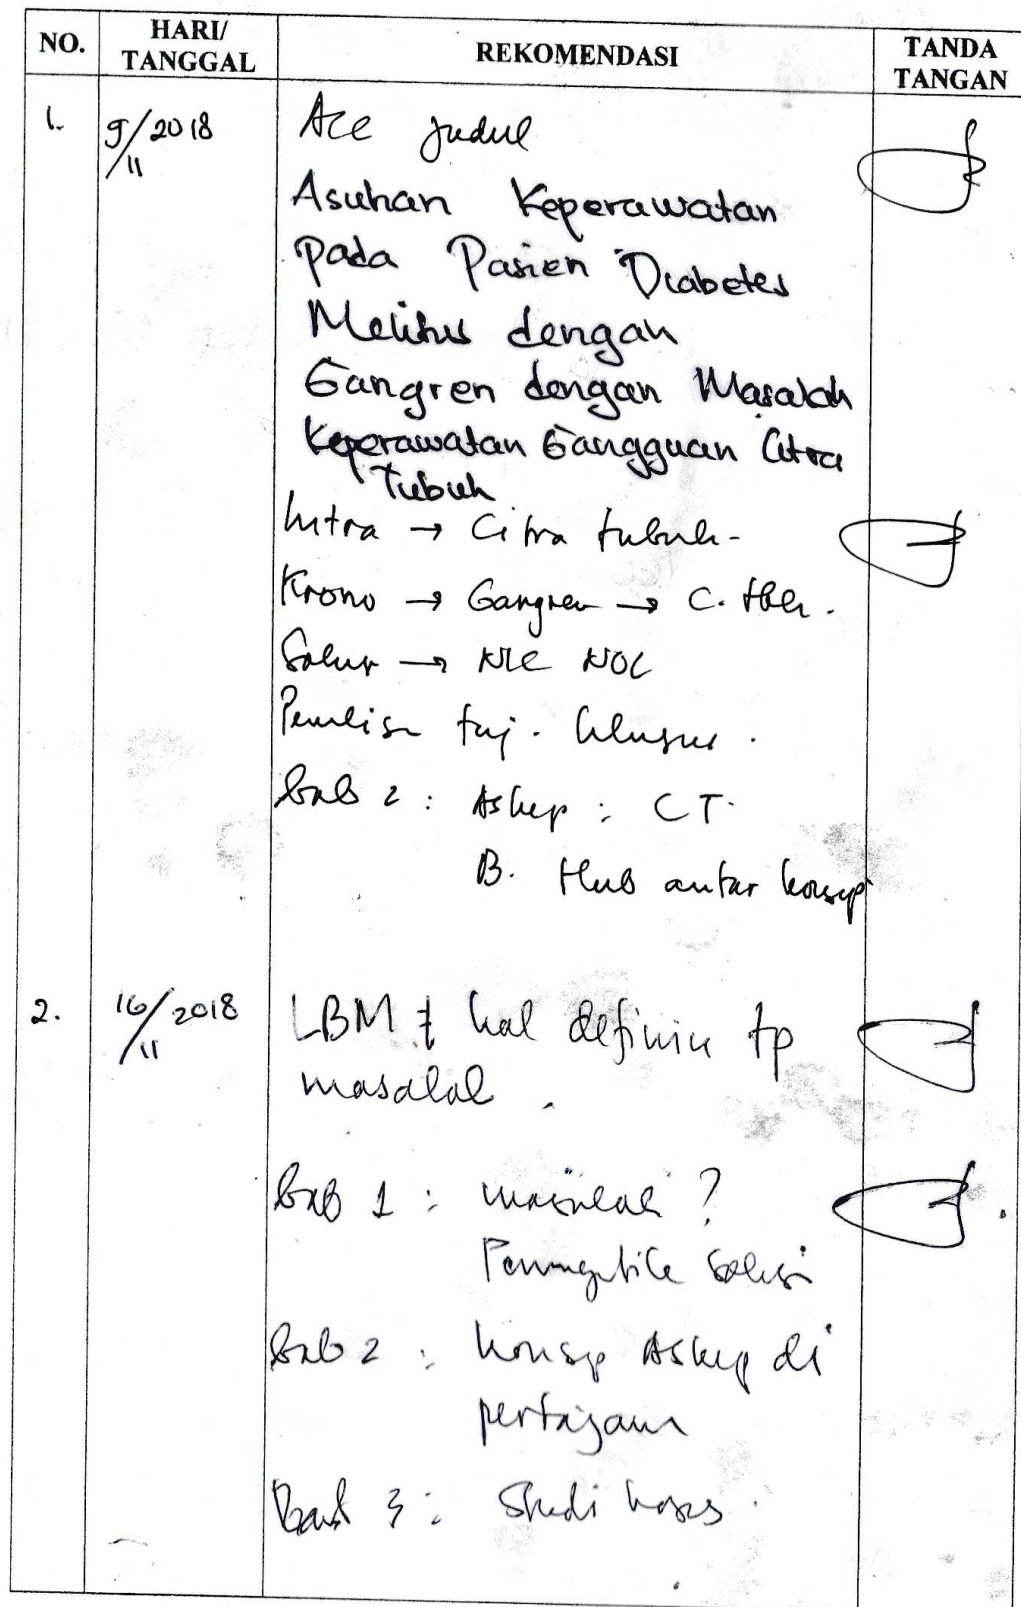 NO.
HARI/
TANGGAL
REKOMENDASI
TANDA
TANGAN
1.
9/11/2018
Acc Judul
Asuhan Keperawatan
Pada Pasien Diabetes
Melitus dengan
Gangren dengan Masalah
Keperawatan Gangguan Citra
Tubuh
Intro → Citra tubuh-
Krono → Gangren → C. tbh.
Solusi → NIC NOC
Penulisan tuj. khusus.
Bab 2 : Askep : CT.
B. Hub antar konsep
2.
16/11/2018
LBM ≠ hal definisi tp
masalah.
Bab 1 : masalah ?
solusi
Bab 2 : konsep Askep di
pertajam
Bab 3 : Studi kasus.